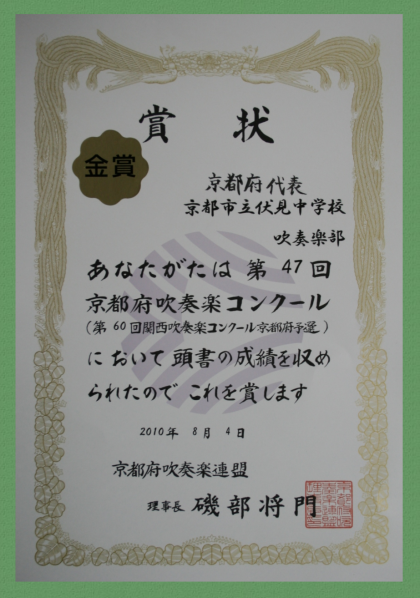 賞状
金賞
京都府代表
京都市立伏見中学校
吹奏楽部
あなたがたは 第47回
京都府吹奏楽コンクール
(第60回関西吹奏楽コンクール京都府予選)
において頭書の成績を収め
られたので これを賞します
2010年 8月 4日
京都府吹奏楽連盟
理事長 磯部将門